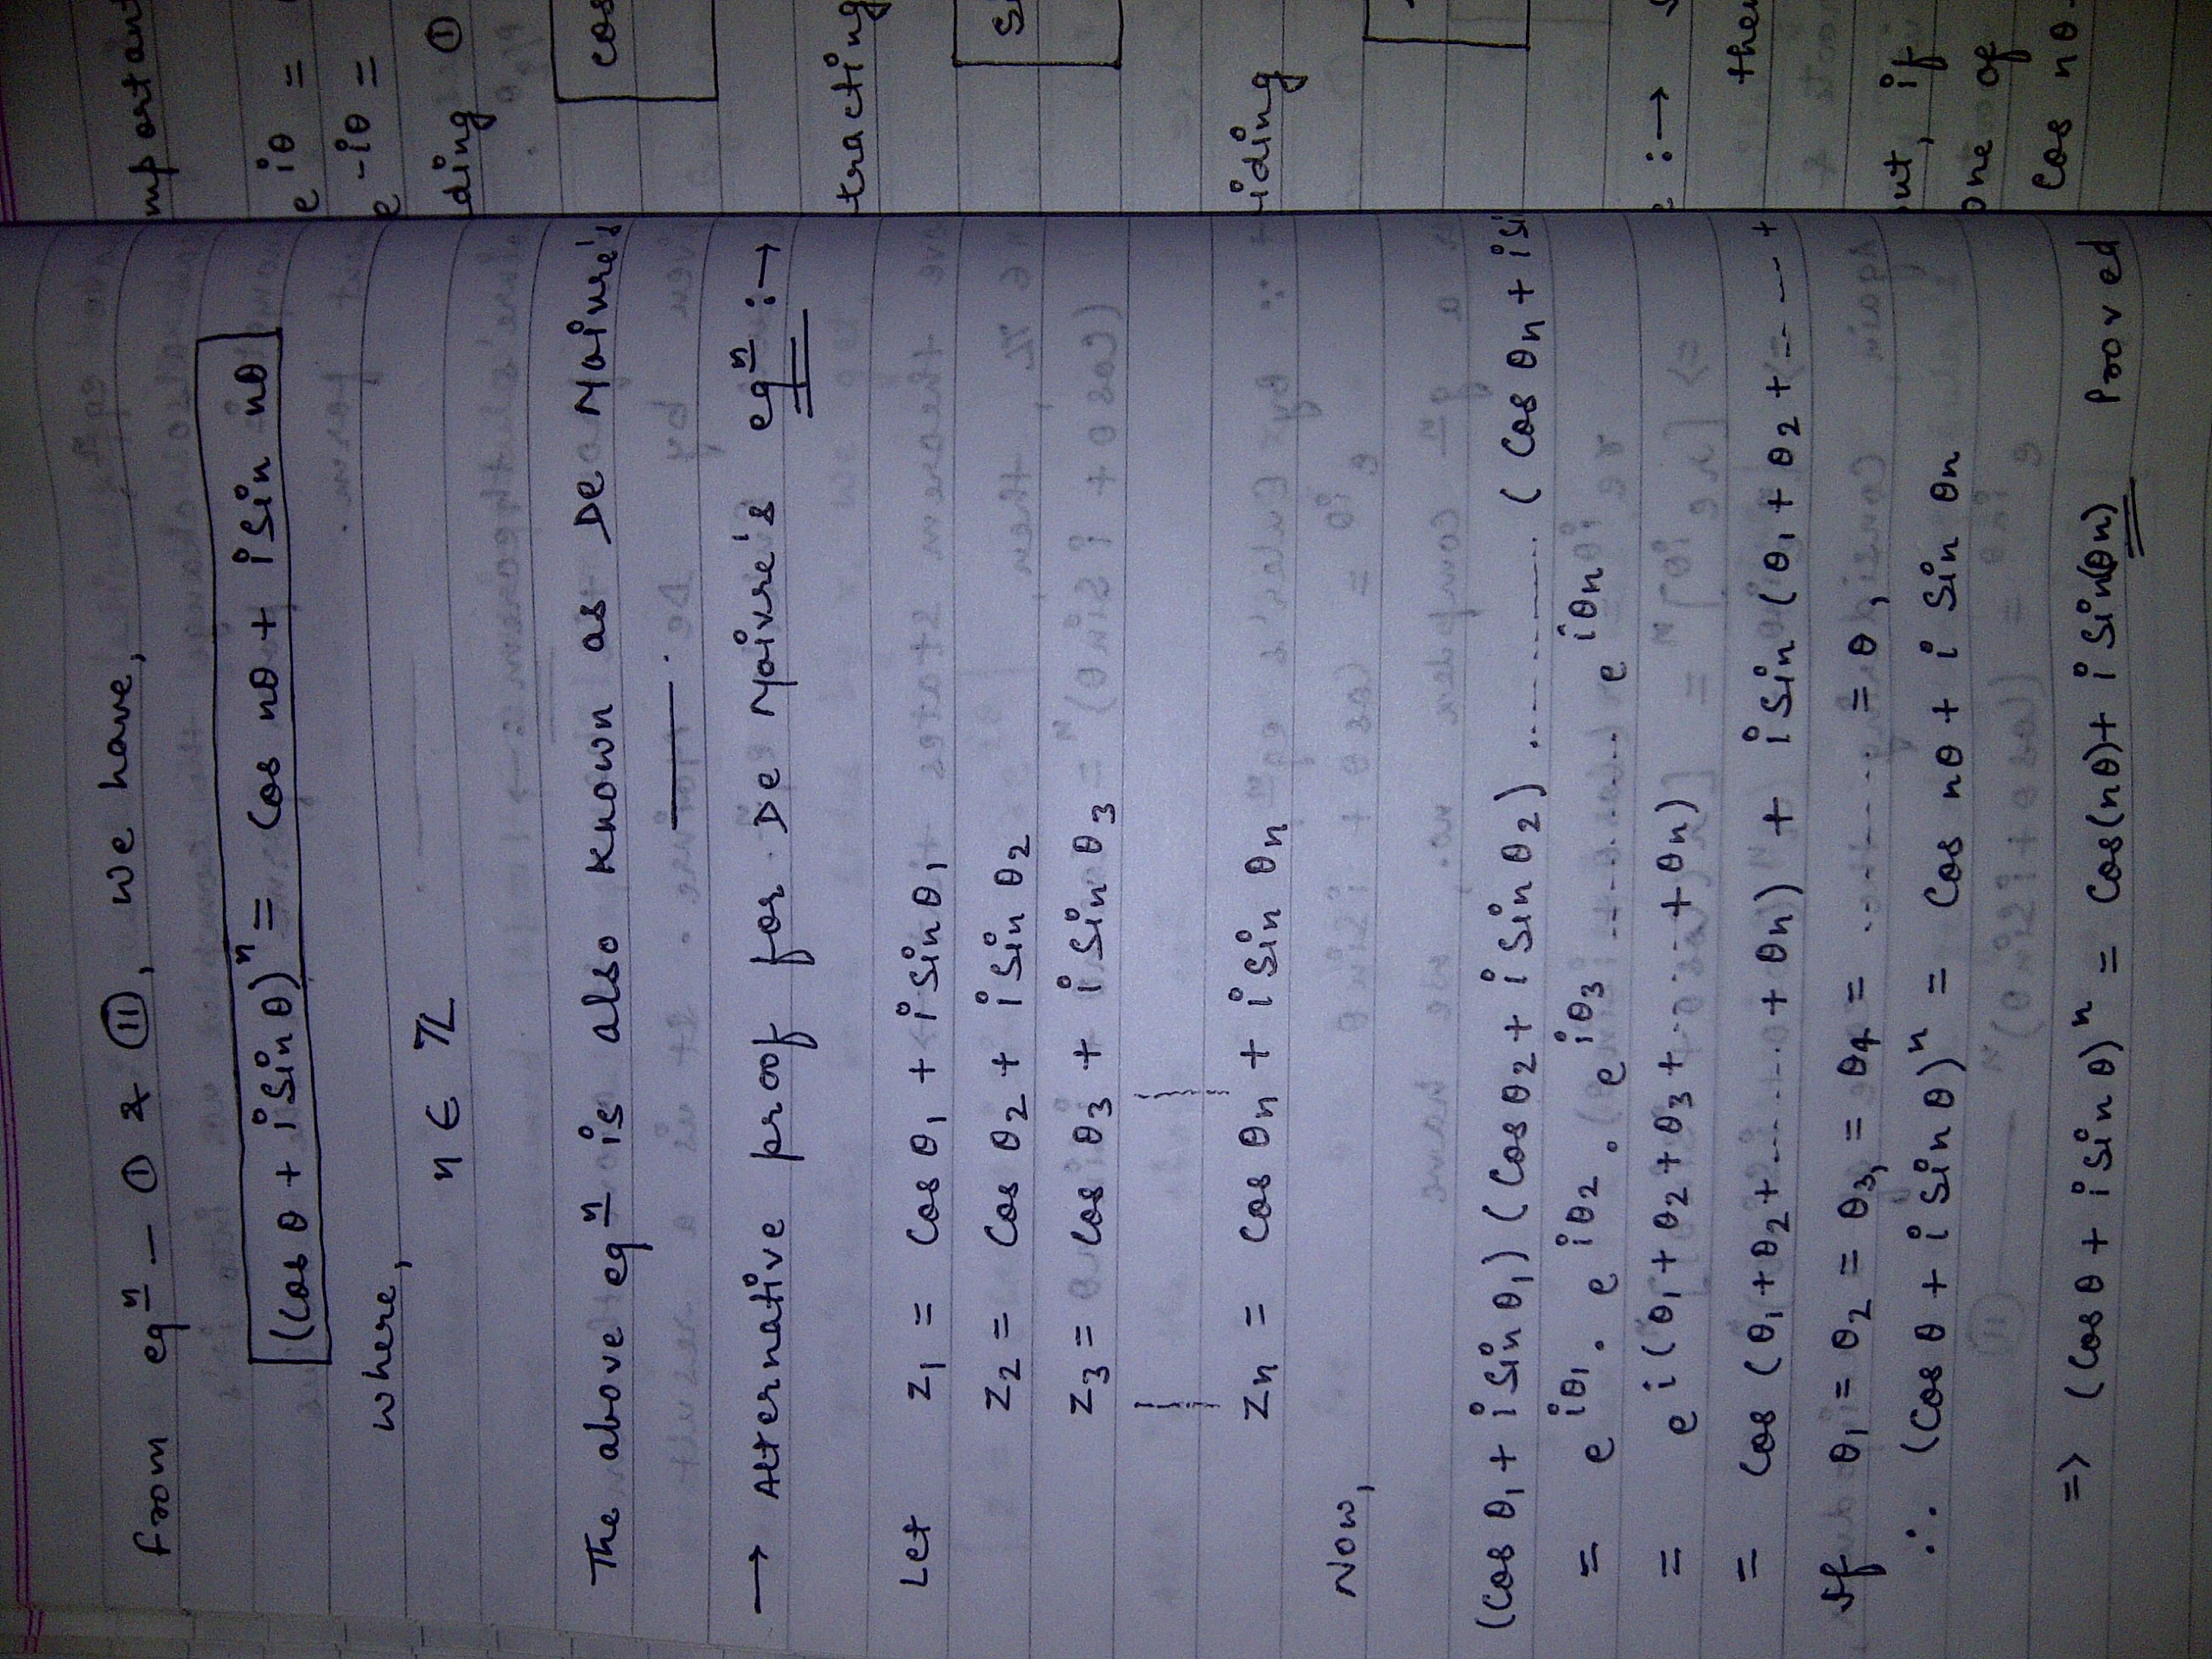 From eqⁿ - Ⓘ & Ⓘⓘ, we have,
(Cos θ + i Sin θ)ⁿ = Cos nθ + i Sin nθ
where,
n ∈ ℤ
The above eqⁿ is also known as De Moivre's
→ Alternative proof for De Moivre's eqⁿ :→
Let z₁ = Cos θ₁ + i Sin θ₁
z₂ = Cos θ₂ + i Sin θ₂
z₃ = Cos θ₃ + i Sin θ₃
zₙ = Cos θₙ + i Sin θₙ
Now,
(Cos θ₁ + i Sin θ₁) (Cos θ₂ + i Sin θ₂) ............ ( Cos θₙ + i Si
= e^{iθ₁} . e^{iθ₂} . e^{iθ₃} ............ e^{iθₙ}
= e^{i(θ₁ + θ₂ + θ₃ + ...... + θₙ)}
= Cos (θ₁ + θ₂ + ...... + θₙ) + i Sin (θ₁ + θ₂ + ----- +
If θ₁ = θ₂ = θ₃, = θ₄ = ......... = θ,
∴ (Cos θ + i Sin θ)ⁿ = Cos nθ + i Sin θn
=> (Cos θ + i Sin θ)ⁿ = Cos(nθ) + i Sin(θn) Proved
mportant
e^{iθ} =
e^{-iθ} =
ding ①
cos
tracting
S
iding
:→
then
ut, if
one of
Cos nθ